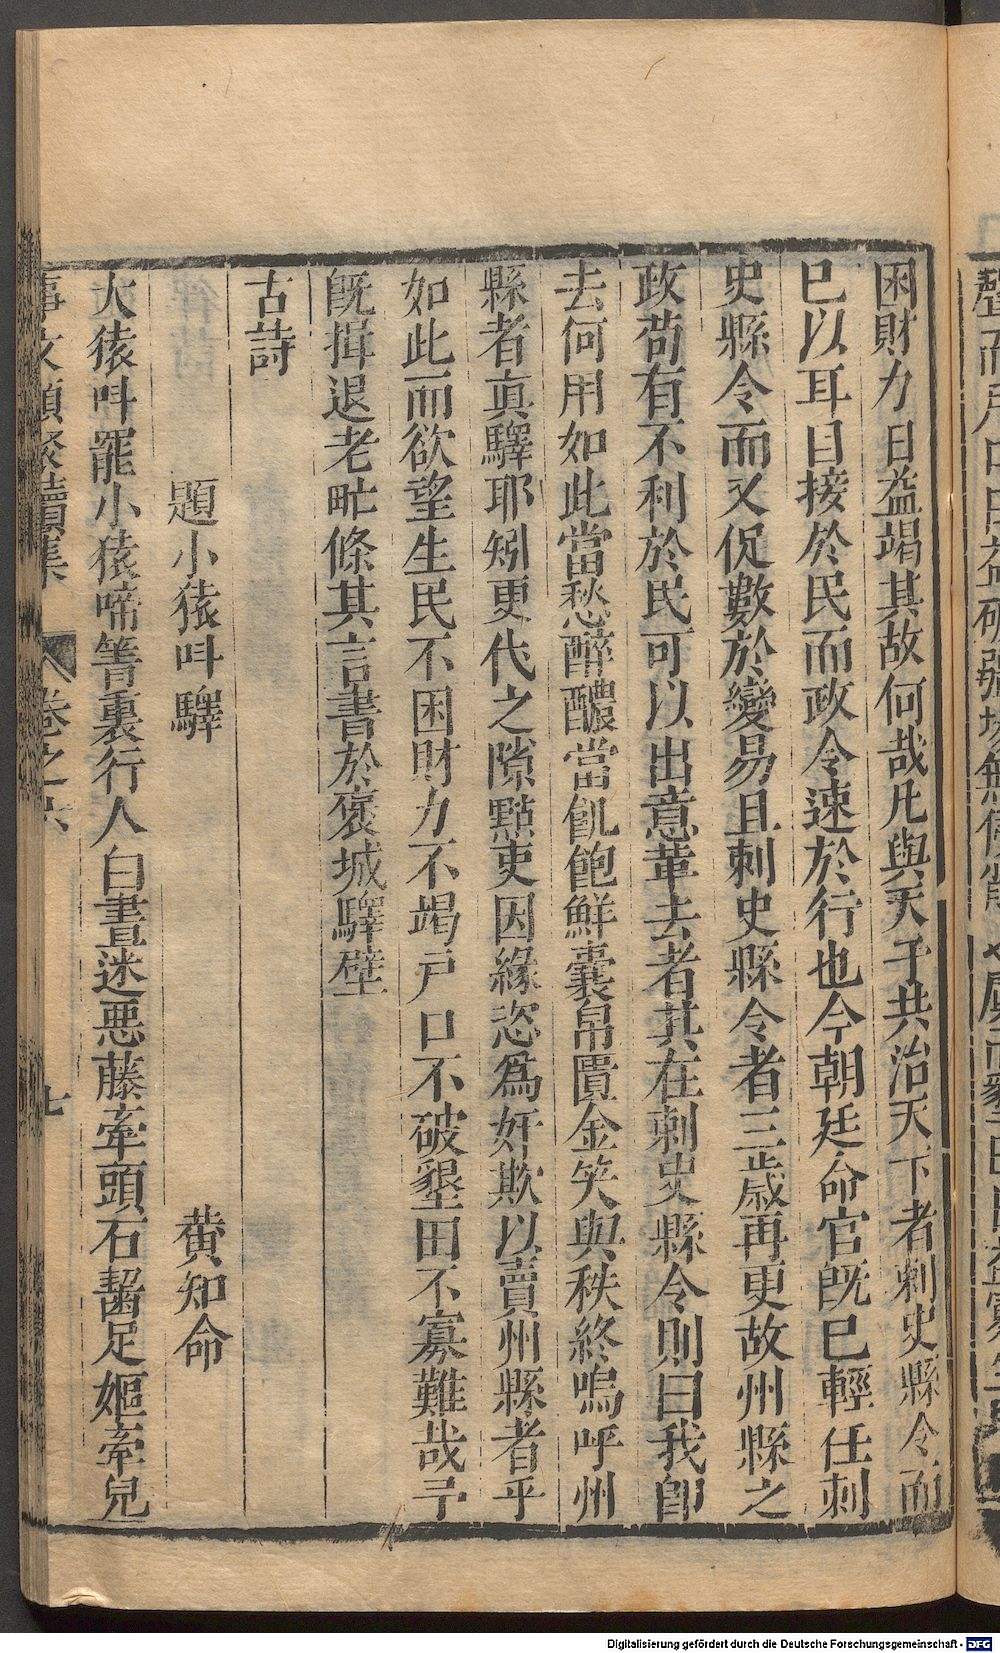 困財力日益竭其故何哉凡與天子共治天下者刺史縣令而
已以耳目接於民而政令速於行也今朝廷命官既已輕任刺
史縣令而又促數於變易且刺史縣令者三歲再更故州縣之
政苟有不利於民可以出意革去者其在刺史縣令則曰我即
去何用如此當愁醉醲當飢飽鮮囊帛匱金笑與秩終嗚呼州
縣者真驛耶矧更代之隙黠吏因緣恣爲奸欺以賣州縣者乎
如此而欲望生民不困財力不竭戶口不破墾田不寡難哉予
既揖退老甿條其言書於褒城驛壁
古詩
題小猿呌驛 黄知命
大猿呌罷小猿啼箐裏行人白晝迷惡藤牽頭石齧足嫗牽兒
事文類聚續集 卷之六 七
Digitalisierung gefördert durch die Deutsche Forschungsgemeinschaft - DFG